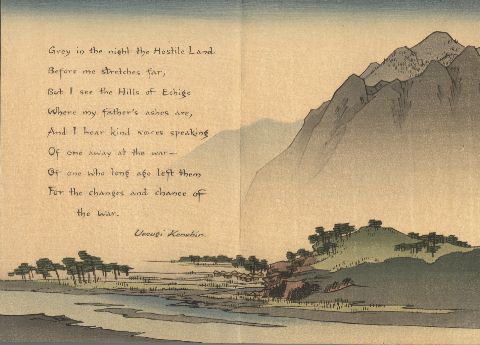 Grey in the night the Hostile Land
Before me stretches far,
But I see the Hills of Echigo
Where my father's ashes are,
And I hear kind voices speaking
Of one away at the war—
Of one who long ago left them
For the changes and chance of
the war.
Uesugi Kenshin.